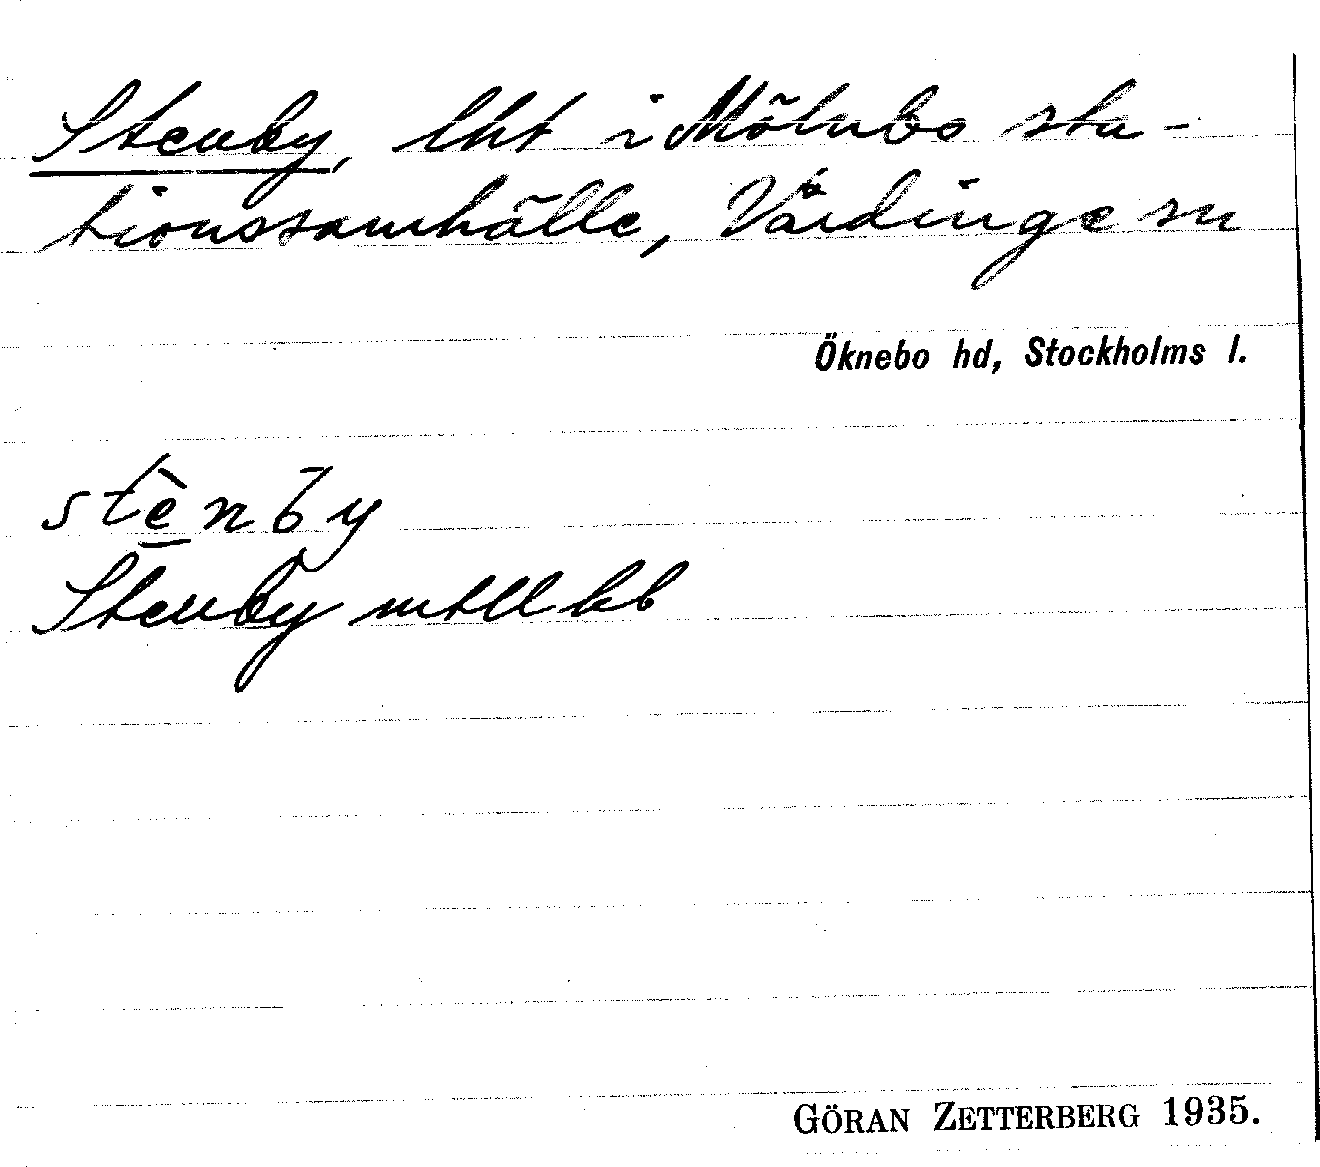 Stenby, lht i Mölnbo sta-
tionssamhälle, Vårdinge sn
Öknebo hd, Stockholms l.
stènby
Stenby mtll kb
GÖRAN ZETTERBERG 1935.